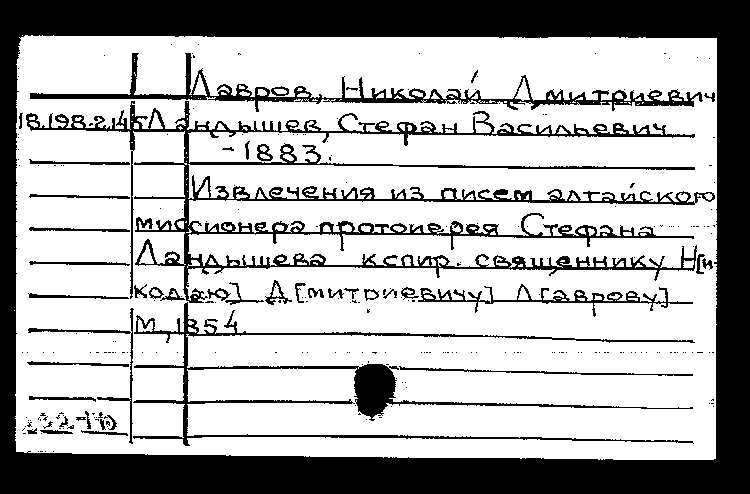 Лавров, Николай Дмитриевич
18.198.2.145 Ландышев, Стефан Васильевич
-1883.
Извлечения из писем алтайского
миссионера протоиерея Стефана
Ландышева к спир. священнику Н[и-
колаю] Д[митриевичу] Л[аврову]
М., 1854.